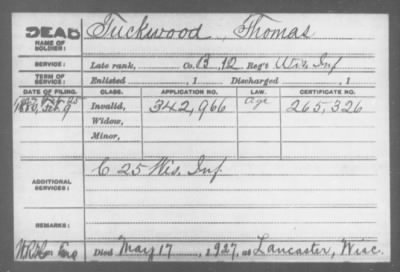 DEAD Tuckwood, Thomas
NAME OF
SOLDIER:
SERVICE: Late rank, Co. B, 12 Reg't Wis. Inf
TERM OF
SERVICE: Enlisted , 1 Discharged , 1
DATE OF FILING. CLASS. APPLICATION NO. LAW. CERTIFICATE NO.
1880, Feb. 9 Invalid, 342,966 Age 265,326
Widow,
Minor,
ADDITIONAL
SERVICES: C 25 Wis. Inf.
REMARKS:
Died May 17, 1927, at Lancaster, Wisc.